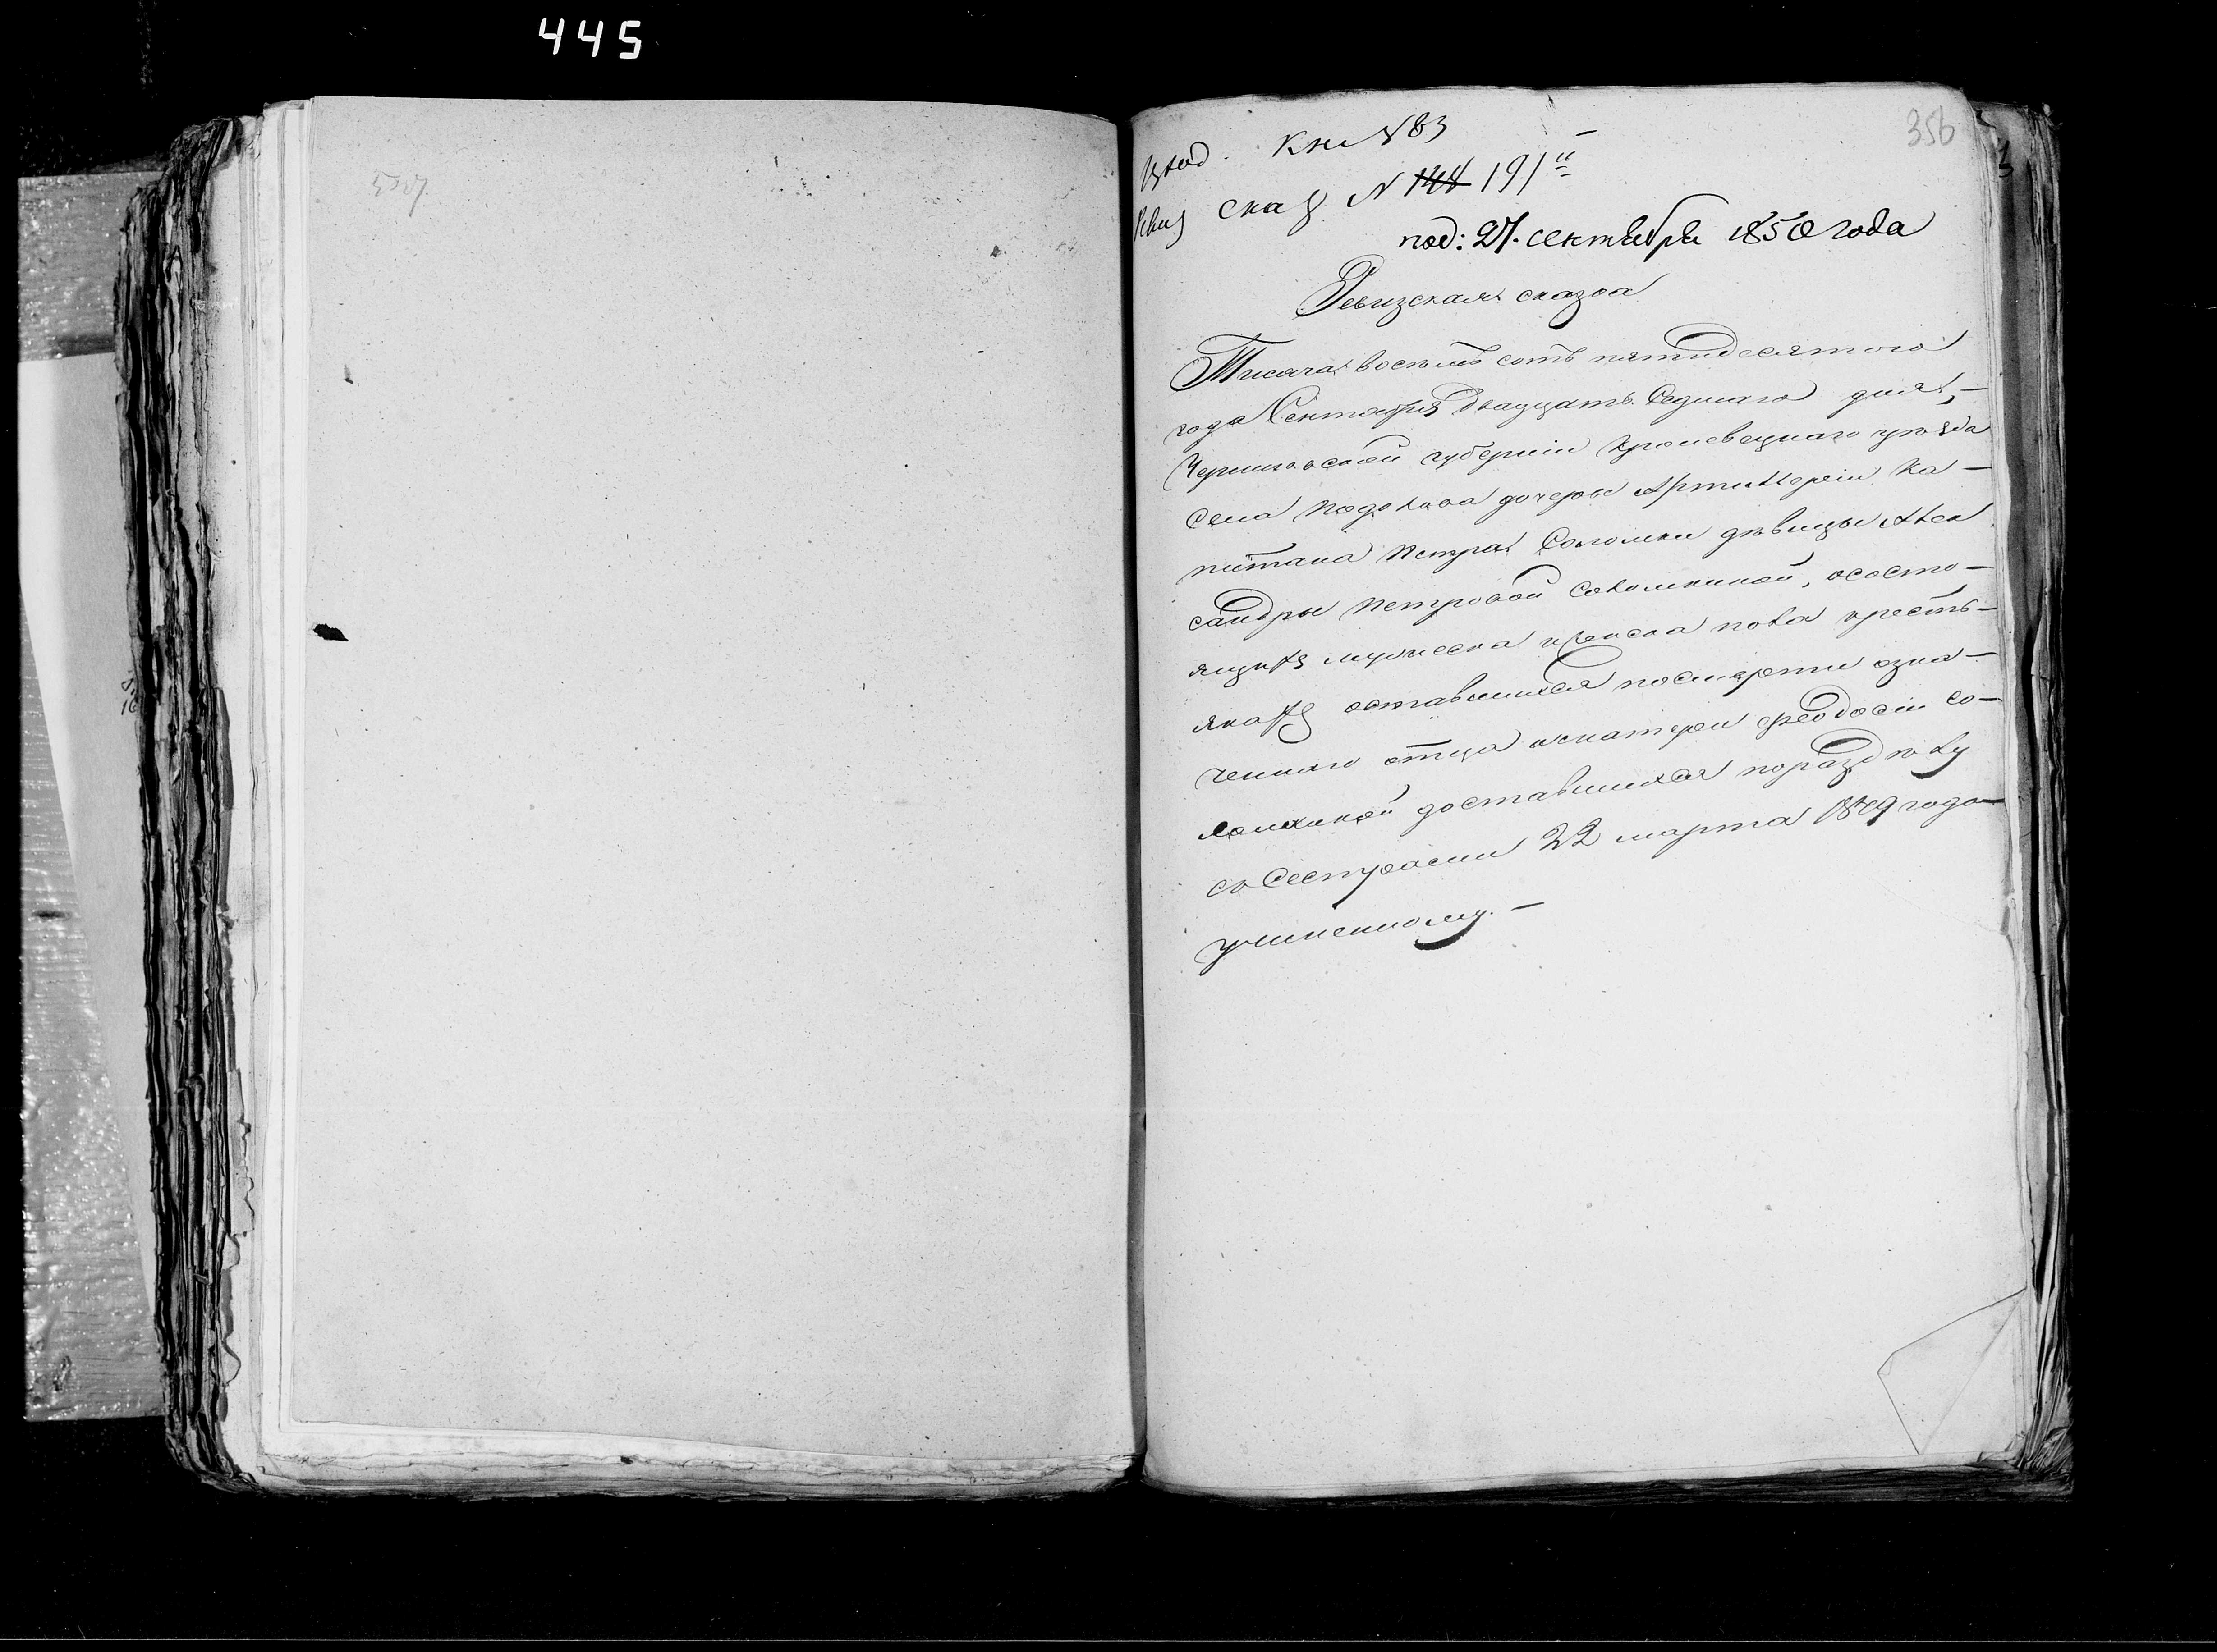 445
356
Кн № 83
Ревиз сказ № 144 191й
под: 27. сентября 1850 года
Ревизская сказка
Тисяча восемь сотъ пятидесятого
года Сентября двадцать Седмаго дня, —
Черниговской губерніи Кролевецкаго уезда
Села Подолова дочеры Артиллеріи Ка —
питана Петра Соломки девицы Алек
сандры Петровой Соломкиной, ососто —
ящихъ мужеска иженска пола кресть —
янахъ оставшихся посмерти озна —
ченнаго отца иматери Феодосіи Со —
ломкиной доставшихся поразделу
съ Сестрами 22 марта 1849 года —
учиненному. —